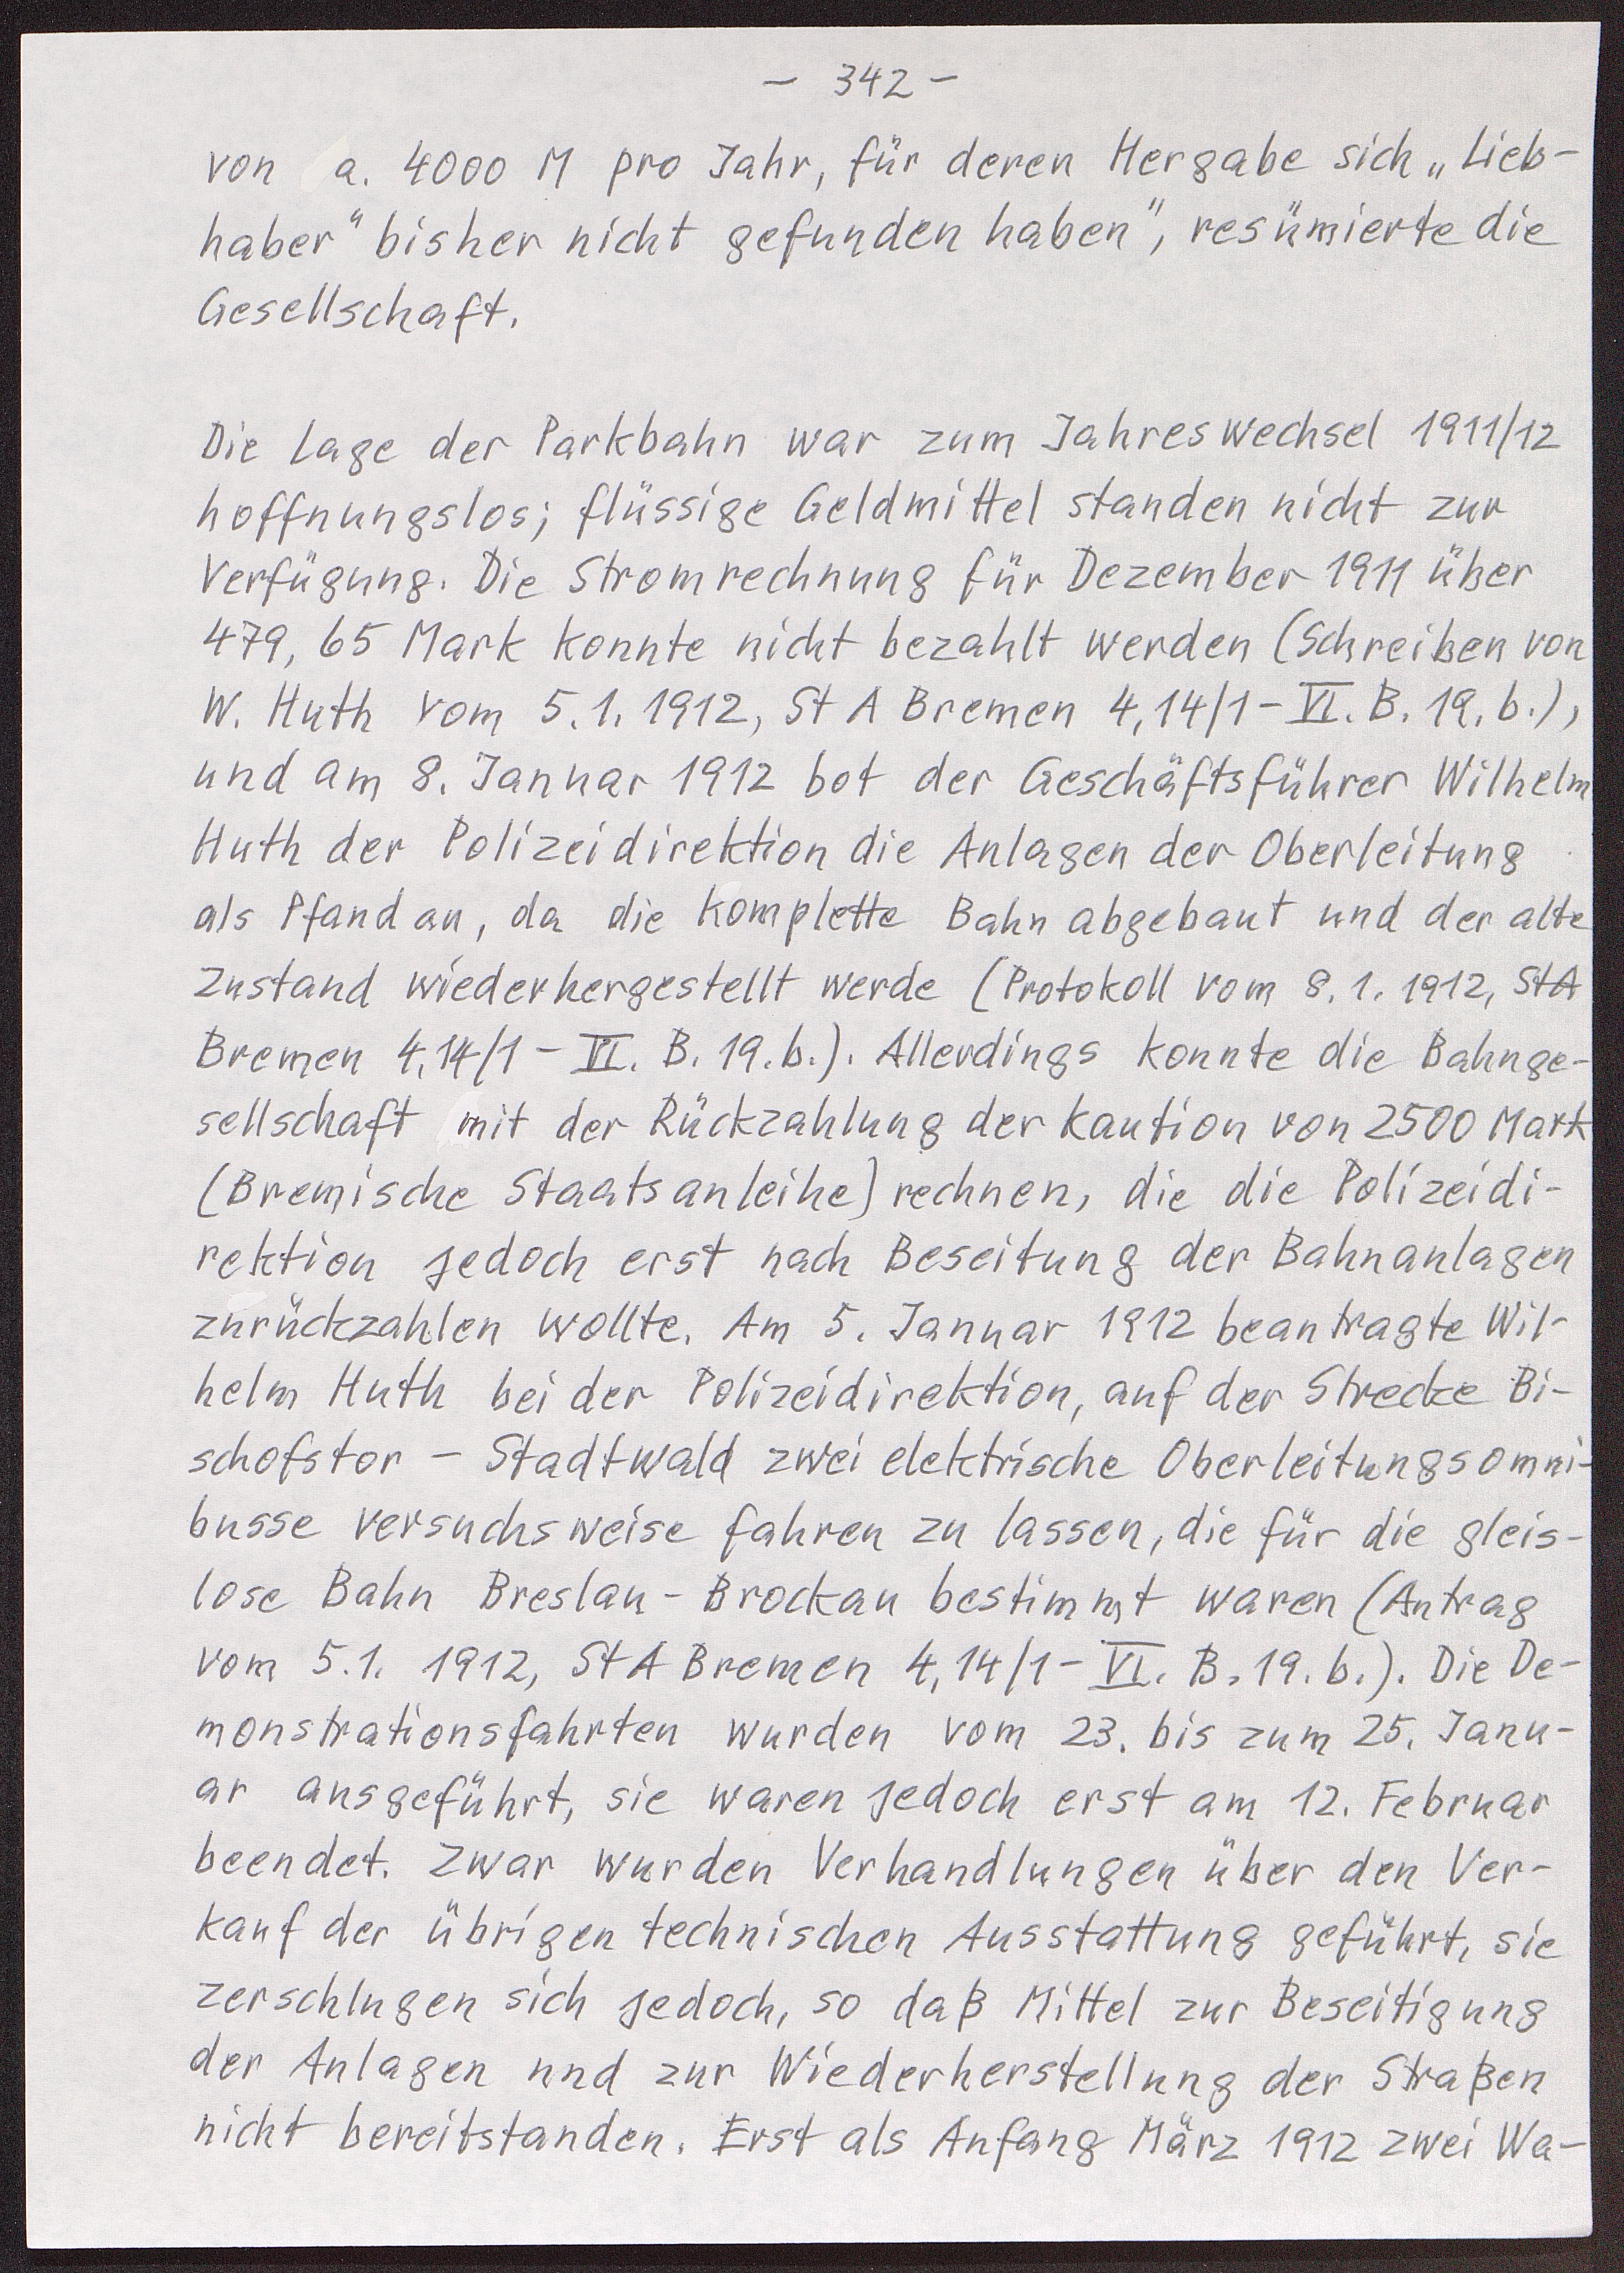 - 342 -
von a. 4000 M pro Jahr, für deren Hergabe sich „Lieb-
haber" bisher nicht gefunden haben", resümierte die
Gesellschaft.
Die Lage der Parkbahn war zum Jahreswechsel 1911/12
hoffnungslos; flüssige Geldmittel standen nicht zur
Verfügung. Die Stromrechnung für Dezember 1911 über
479,65 Mark konnte nicht bezahlt werden (Schreiben von
W. Huth vom 5.1.1912, St A Bremen 4,14/1 - VI. B. 19. b.),
und am 8. Januar 1912 bot der Geschäftsführer Wilhelm
Huth der Polizeidirektion die Anlagen der Oberleitung
als Pfand an, da die komplette Bahn abgebaut und der alte
Zustand wiederhergestellt werde (Protokoll vom 8.1.1912, StA
Bremen 4,14/1 - VI. B. 19. b.). Allerdings konnte die Bahnge-
sellschaft mit der Rückzahlung der Kaution von 2500 Mark
(Bremische Staatsanleihe) rechnen, die die Polizeidi-
rektion jedoch erst nach Beseitung der Bahnanlagen
zurückzahlen wollte. Am 5. Januar 1912 beantragte Wil-
helm Huth bei der Polizeidirektion, auf der Strecke Bi-
schofstor - Stadtwald zwei elektrische Oberleitungsomni-
busse versuchsweise fahren zu lassen, die für die gleis-
lose Bahn Breslau - Brockau bestimmt waren (Antrag
vom 5.1. 1912, StA Bremen 4,14/1 - VI. B. 19. b.). Die De-
monstrationsfahrten wurden vom 23. bis zum 25. Janu-
ar ausgeführt, sie waren jedoch erst am 12. Februar
beendet. Zwar wurden Verhandlungen über den Ver-
kauf der übrigen technischen Ausstattung geführt, sie
zerschlugen sich jedoch, so daß Mittel zur Beseitigung
der Anlagen und zur Wiederherstellung der Straßen
nicht bereitstanden. Erst als Anfang März 1912 zwei Wa-